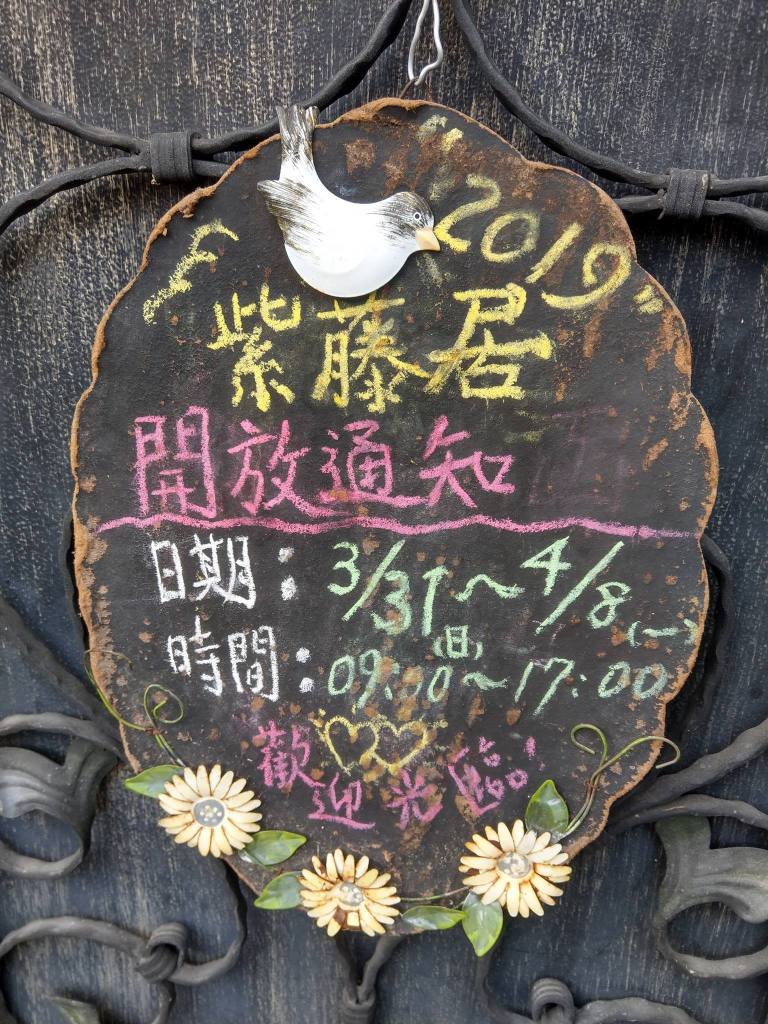 "2019"
紫藤居
開放通知
日期：3/31(日)～4/8(一)
時間：09:00～17:00
歡迎光臨!